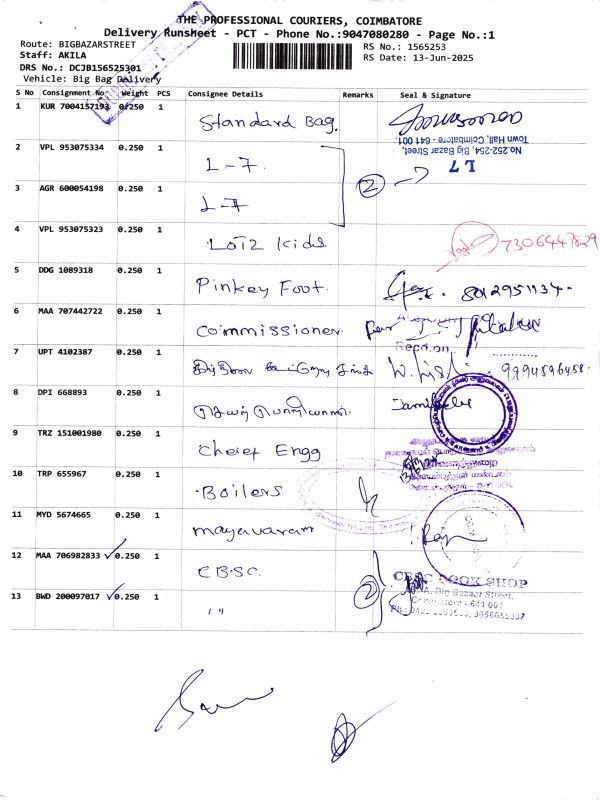 THE PROFESSIONAL COURIERS, COIMBATORE
Delivery Runsheet - PCT - Phone No.:9047080280 - Page No.:1
Route: BIGBAZARSTREET
RS No.: 1565253
Staff: AKILA
RS Date: 13-Jun-2025
DRS No.: DCJB156525301
Vehicle: Big Bag Delivery
S No Consignment No. Weight PCS Consignee Details Remarks Seal & Signature
1 KUR 7004157193 0.250 1 Standard Bag.
Town Hall, Coimbatore - 641 001.
No.252-254, Big Bazar Street,
L 7
2 VPL 953075334 0.250 1 L-7
3 AGR 600054198 0.250 1 L-7
2
4 VPL 953075323 0.250 1 LOT2 kids 7306447829
5 DDG 1089318 0.250 1 Pinkey Foot. 8012951134.
6 MAA 707442722 0.250 1 Commissioner
7 UPT 4102387 0.250 1 9994596458.
8 DPI 668893 0.250 1
9 TRZ 151001980 0.250 1 Cheief Engg
10 TRP 655967 0.250 1 Boilers
11 MYD 5674665 0.250 1 mayavaram
12 MAA 706982833 0.250 1 CBSC.
2
CBSC BOOK SHOP
Big Bazaar Street,
Coimbatore - 641 001
13 BWD 200097017 0.250 1 "